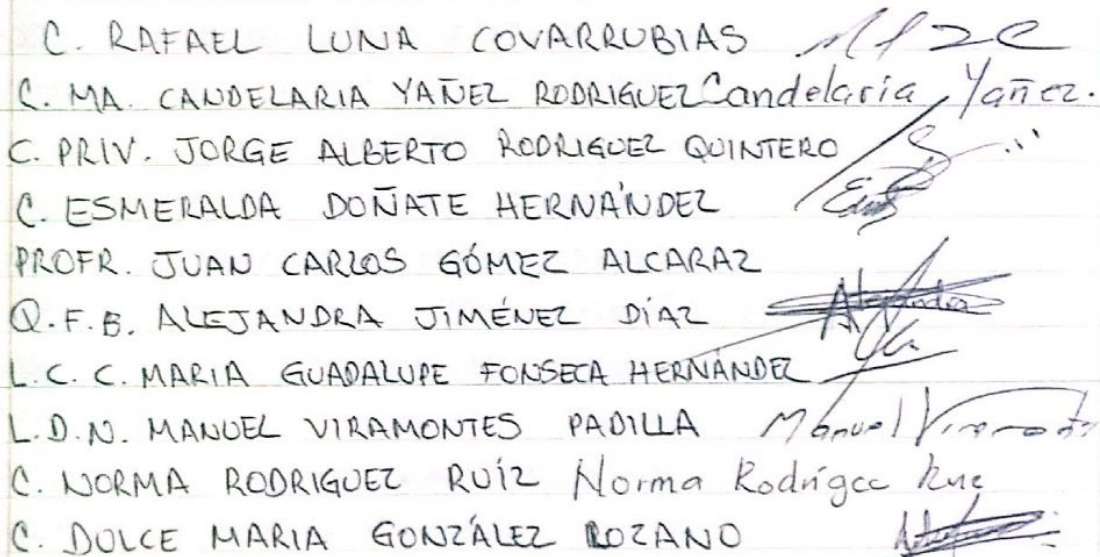 C. RAFAEL LUNA COVARRUBIAS
C. MA. CANDELARIA YAÑEZ RODRIGUEZ Candelaria Yañez.
C. PRIV. JORGE ALBERTO RODRIGUEZ QUINTERO
C. ESMERALDA DOÑATE HERNÁNDEZ
PROFR. JUAN CARLOS GÓMEZ ALCARAZ
Q.F.B. ALEJANDRA JIMÉNEZ DÍAZ Alejandra
L.C.C. MARIA GUADALUPE FONSECA HERNÁNDEZ
L.D.N. MANUEL VIRAMONTES PADILLA Manuel Viramontes
C. NORMA RODRIGUEZ RUÍZ Norma
C. DULCE MARIA GONZÁLEZ LOZANO